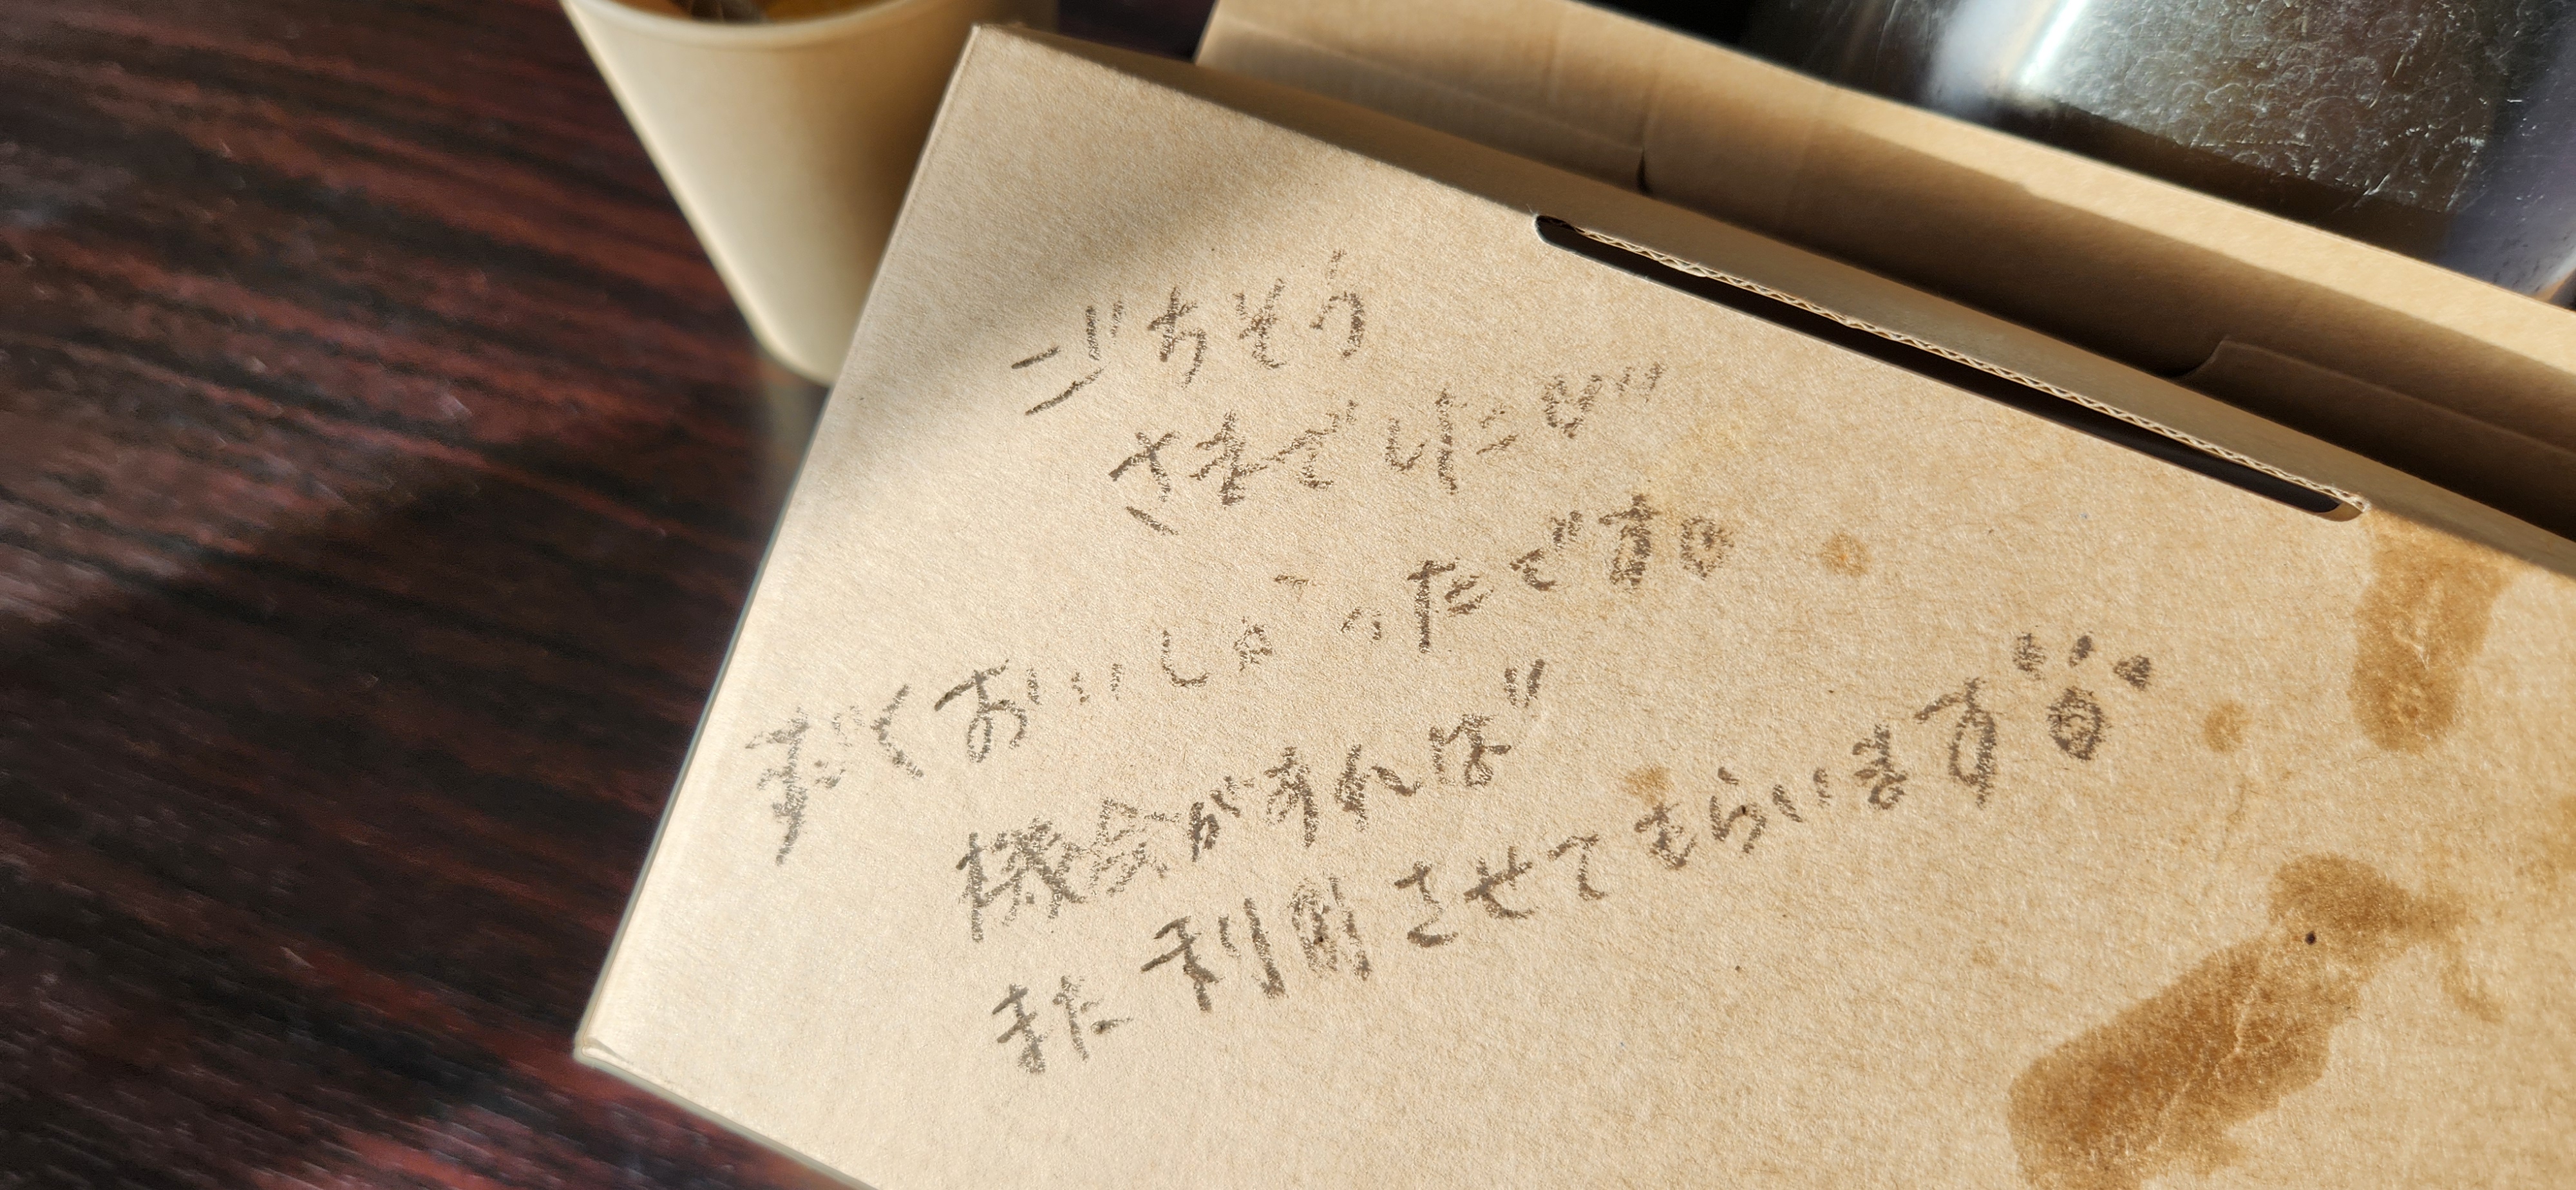 ごちそう
さまでした
すごくおいしかったです。
機会があれば
また利用させてもらいます